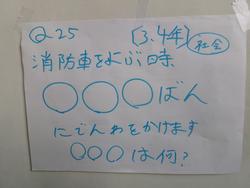 Q25 (3.4年) 社会
消防車をよぶ時
○○○ばん
にでんわをかけます
○○○は何?